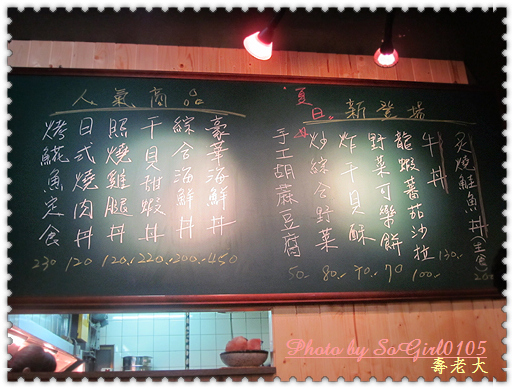 人氣商品
豪華海鮮丼 450
綜合海鮮丼 200.-
干貝甜蝦丼 220.-
照燒雞腿丼 120.-
日式燒肉丼 120
烤鯤魚定食 230
夏日
新登場
炙燒鮭魚丼(主食) 200
牛丼 130.-
龍蝦蕃茄沙拉 100.-
野菜可樂餅 70
炸干貝酥 70.-
炒綜合野菜 80.-
手工胡蔴豆腐 50.-
Photo by SoGirl0105
壽老大